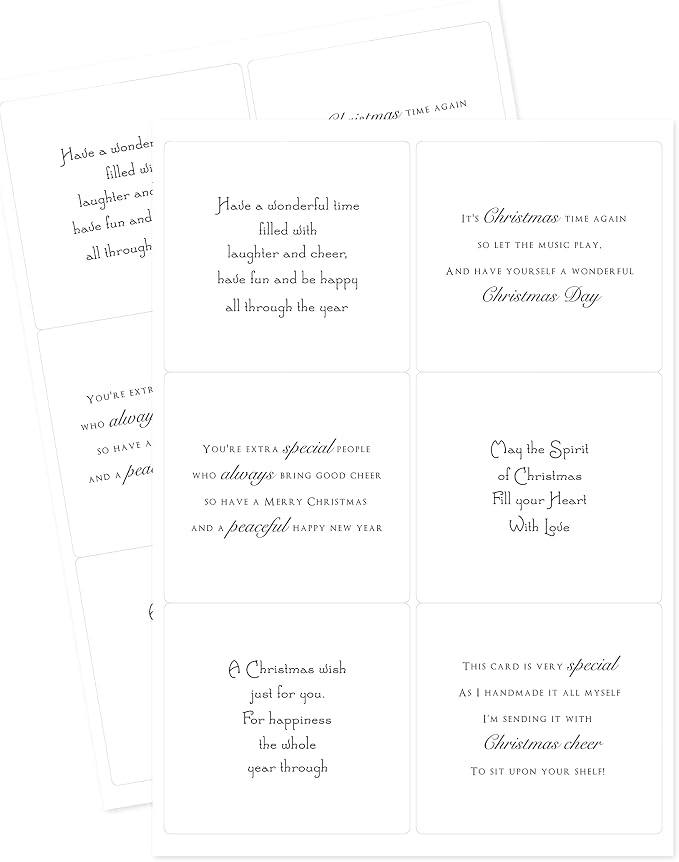 Have a wonder
filled wi
laughter and
have fun and
all through
Christmas TIME AGAIN
YOU'RE EXTR
WHO always
SO HAVE A
AND A peac
Have a wonderful time
filled with
laughter and cheer,
have fun and be happy
all through the year
IT'S Christmas TIME AGAIN
SO LET THE MUSIC PLAY,
AND HAVE YOURSELF A WONDERFUL
Christmas Day
YOU'RE EXTRA special PEOPLE
WHO always BRING GOOD CHEER
SO HAVE A MERRY CHRISTMAS
AND A peaceful HAPPY NEW YEAR
May the Spirit
of Christmas
Fill your Heart
With Love
A Christmas wish
just for you.
For happiness
the whole
year through
THIS CARD IS VERY special
AS I HANDMADE IT ALL MYSELF
I'M SENDING IT WITH
Christmas cheer
TO SIT UPON YOUR SHELF!